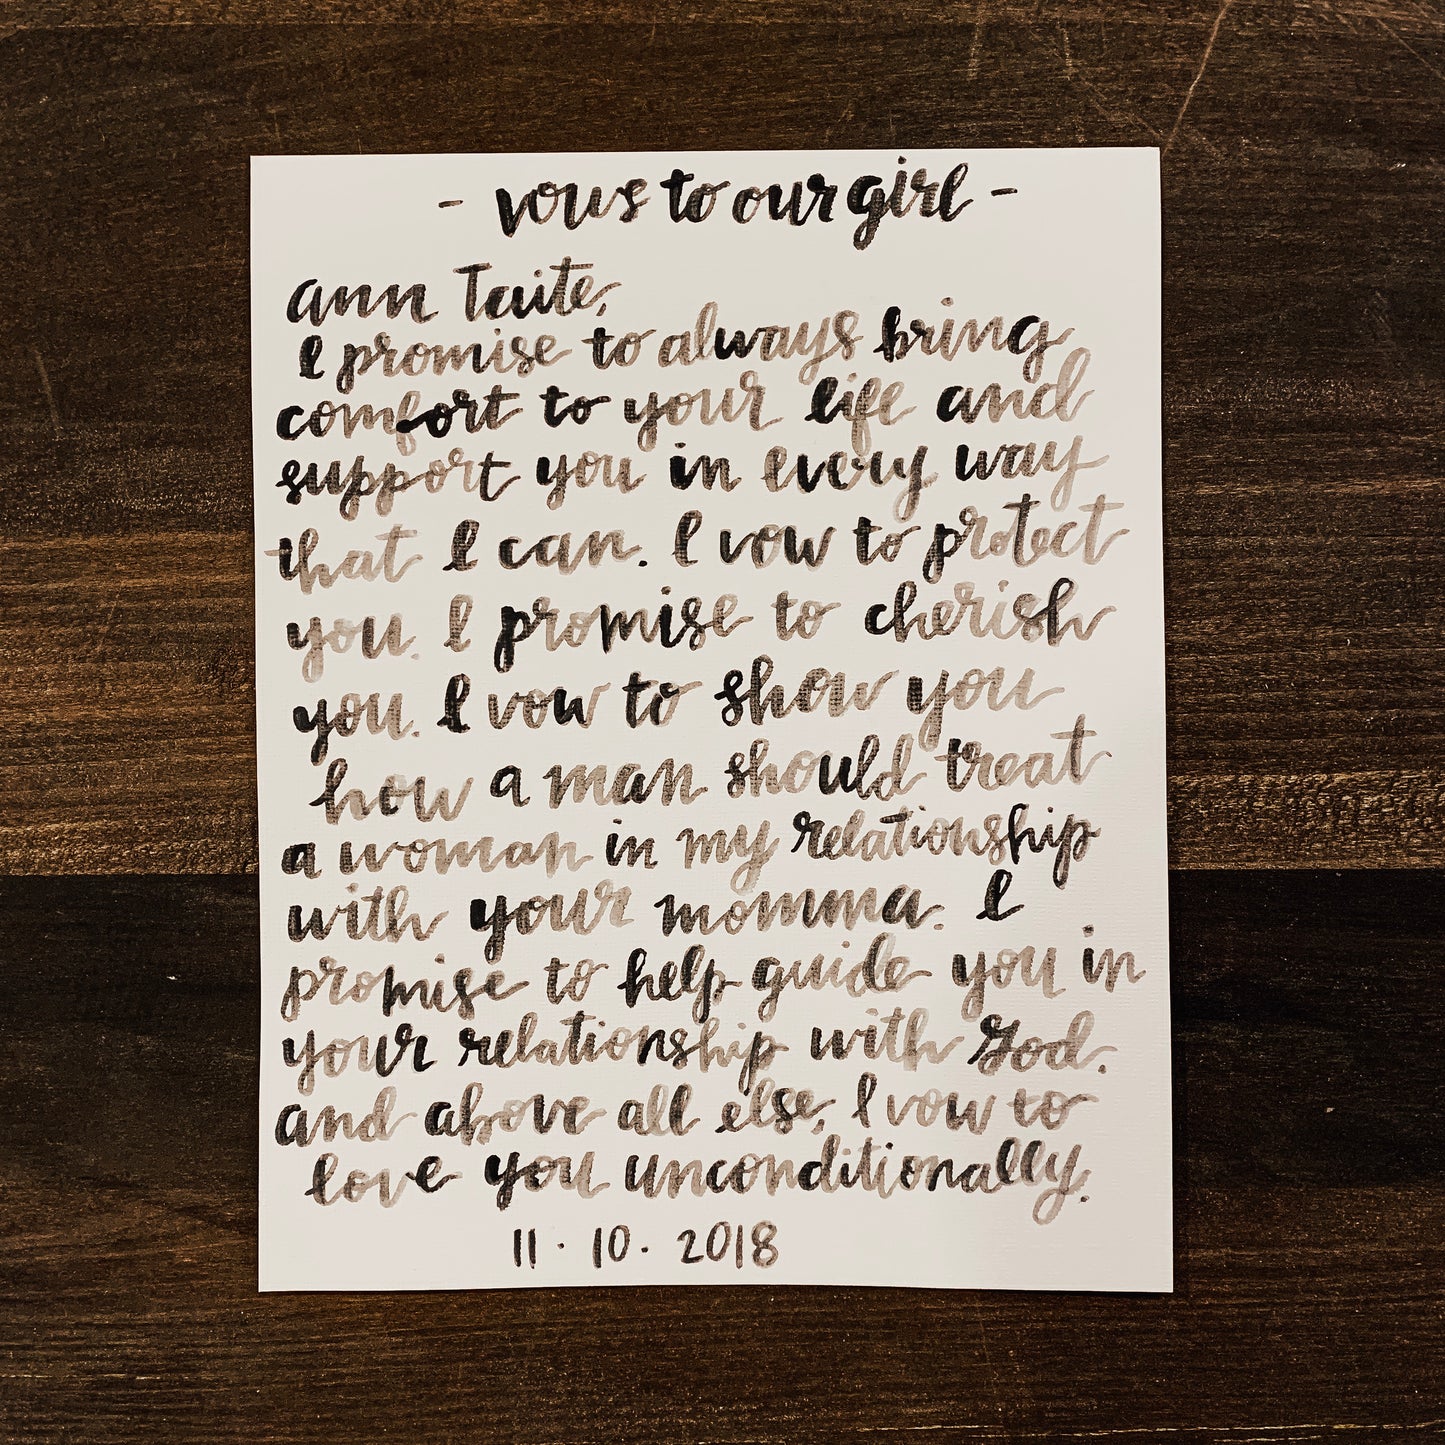 - vows to our girl -
ann Taite,
I promise to always bring
comfort to your life and
support you in every way
that I can. I vow to protect
you. I promise to cherish
you. I vow to show you
how a man should treat
a woman in my relationship
with your momma. I
promise to help guide you in
your relationship with God.
and above all else, I vow to
love you unconditionally.
11 · 10 · 2018